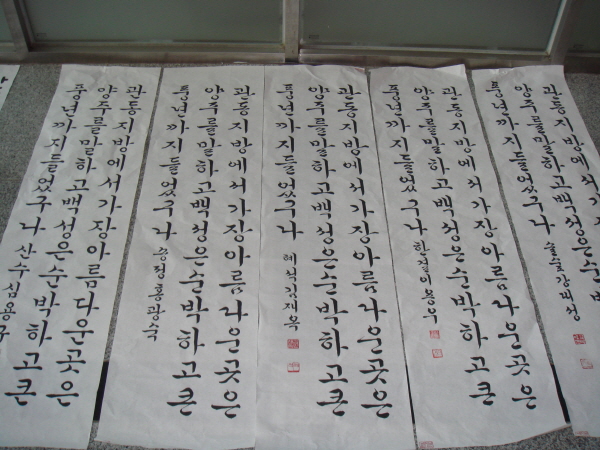 관동지방에서가장아름다운곳은
양주를말하고백성은순박하고큰
풍년까지들었구나 산수심용구
관동지방에서가장아름다운곳은
양주를말하고백성은순박하고큰
풍년까지들었구나 송정홍광숙
관동지방에서가장아름다운곳은
양주를말하고백성은순박하고큰
풍년까지들었구나
관동지방에서가장아름다운곳은
양주를말하고백성은순박하고큰
풍년까지들었구나
관동지방에서가
양주를말하고백성은순
풍년까지들었구나 솔숲강대성